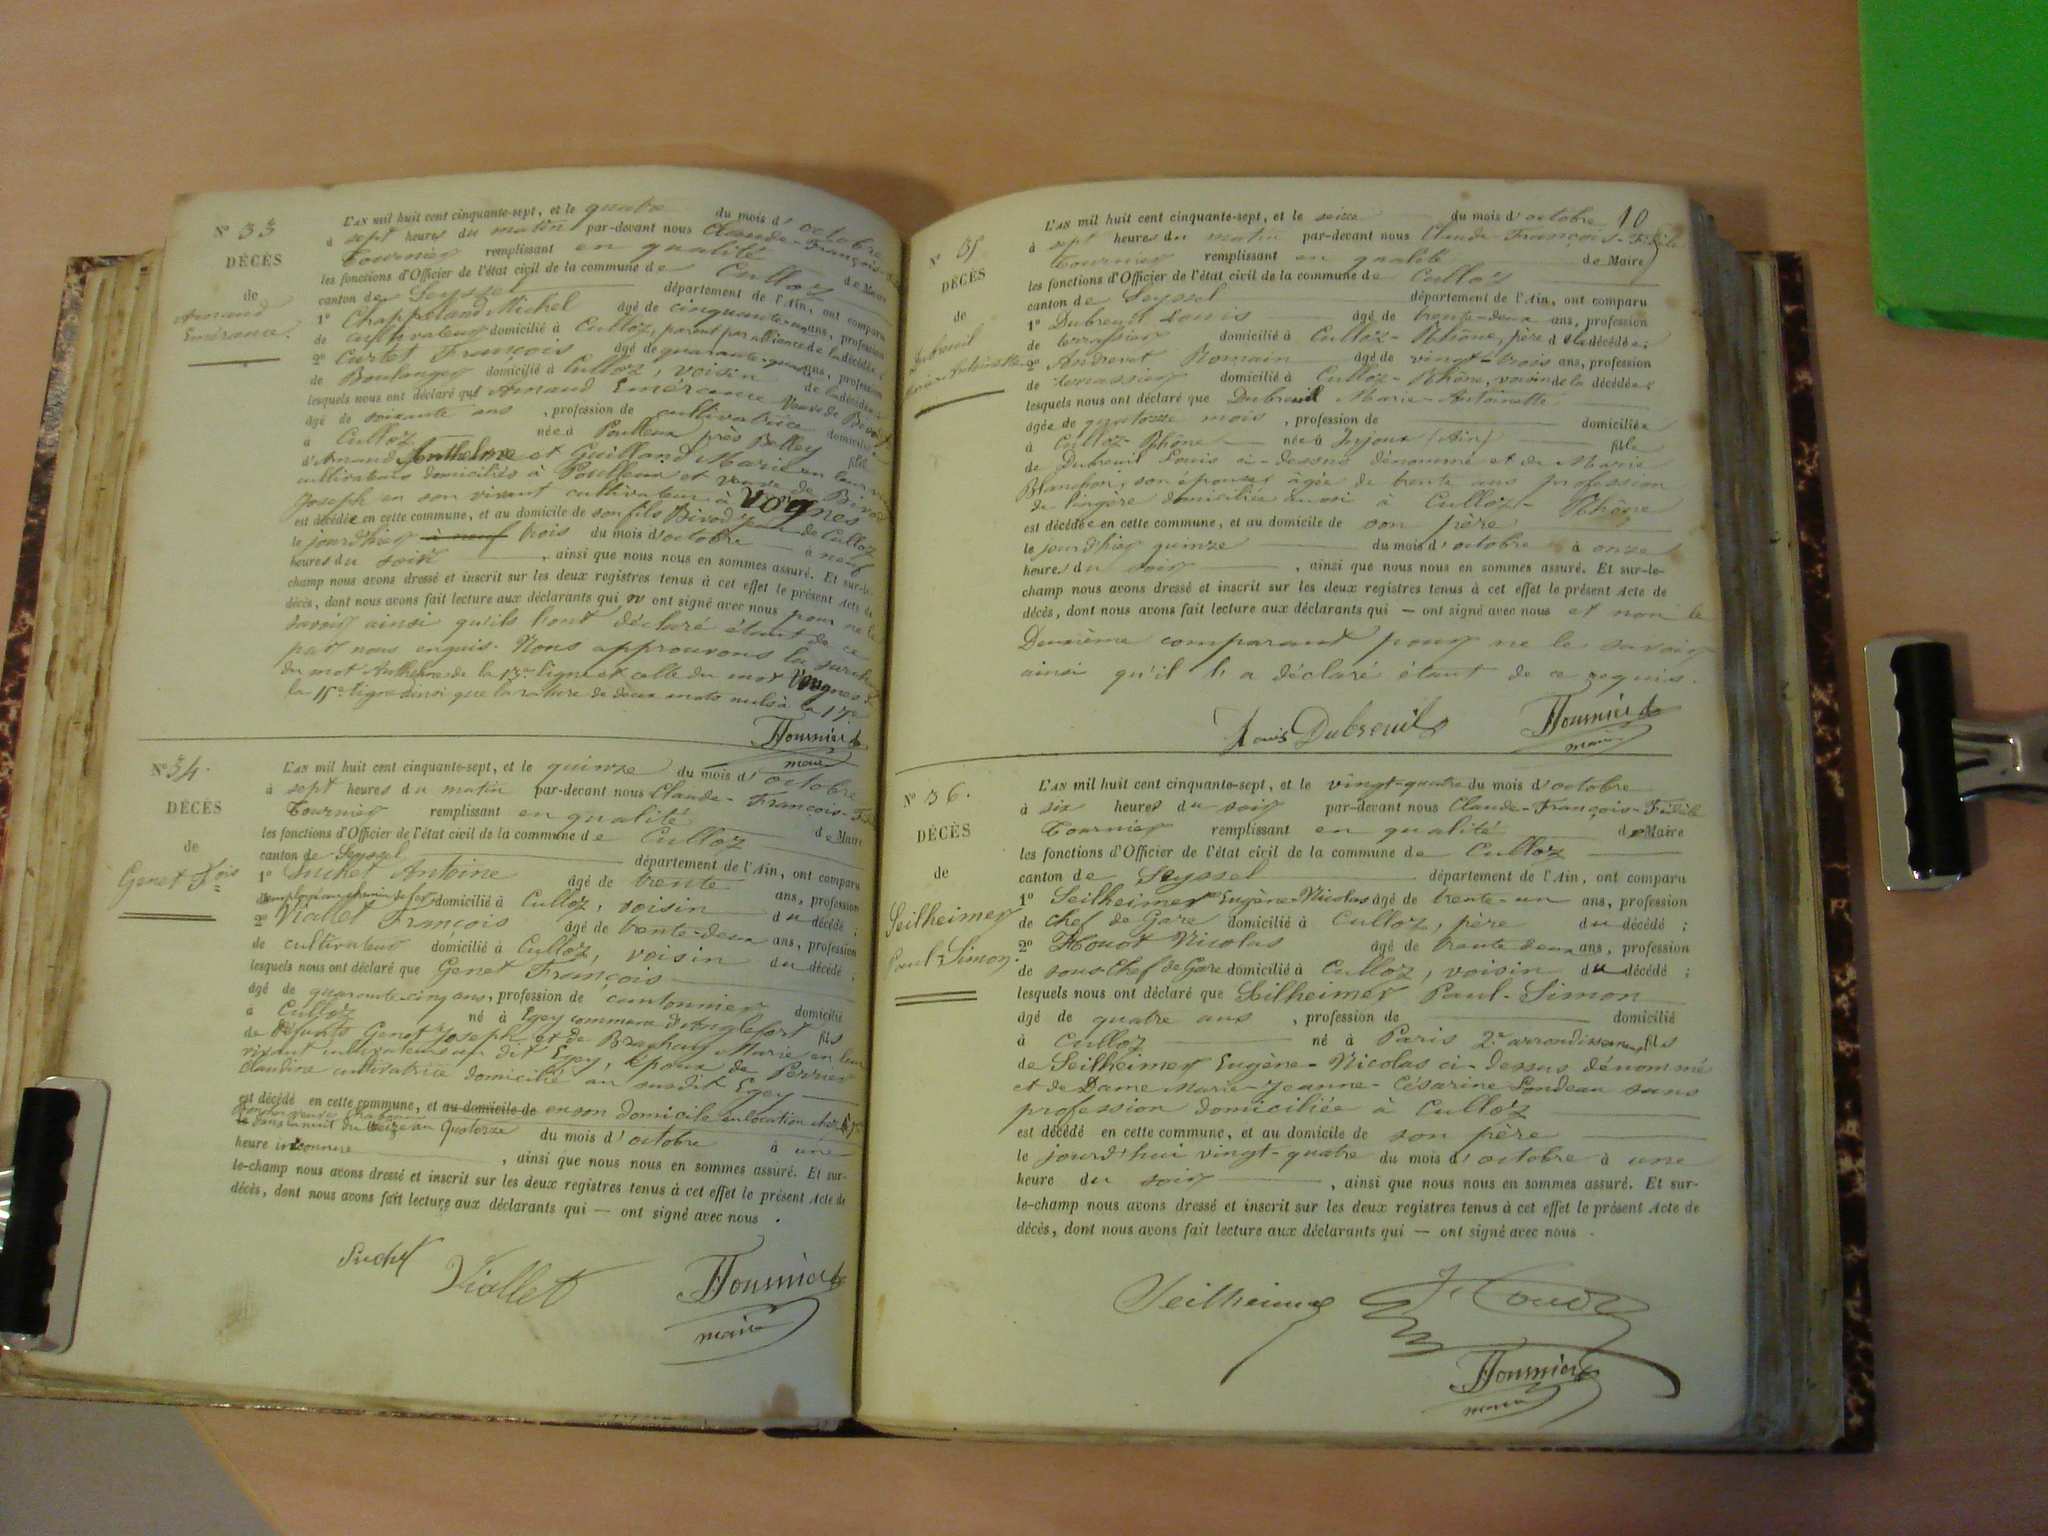 N° 33
DÉCÈS
de
Arnaud
Emérance.
L'AN mil huit cent cinquante-sept, et le quatre du mois d'octobre
à sept heures du matin par-devant nous Claude-François-
Tournier remplissant en qualité de Maire
les fonctions d'Officier de l'état civil de la commune de Culloz
canton de Seyssel département de l'Ain, ont comparu
1° Chappeland Michel âgé de cinquante ans, profession
de cultivateur domicilié à Culloz, parent par alliance de la décédée ;
2° Cartet François âgé de quarante- ans, profession
de Boulanger domicilié à Culloz, voisin de la décédée ;
lesquels nous ont déclaré que Arnaud Emérance Veuve de Bivod
âgé de soixante ans, profession de cultivatrice domiciliée
à Culloz née à Poulleux près Belley fille
d'Arnaud Anthelme et Guilland Marie en leur
cultivateurs domiciliés à Poulleux et veuve de Bivod
Joseph en son vivant cultivateur à Vognes
est décédée en cette commune, et au domicile de son fils Bivod de Culloz
le jourd'hier à neuf trois du mois d'octobre à neuf
heures du soir, ainsi que nous nous en sommes assuré. Et sur-le-
champ nous avons dressé et inscrit sur les deux registres tenus à cet effet le présent Acte de
décès, dont nous avons fait lecture aux déclarants qui n' ont signé avec nous pour ne le
savoir ainsi qu'ils l'ont déclaré étant de ce
par nous enquis. Nous approuvons la surcharge
du mot Anthelme de la 13e ligne et celle du mot Vognes de
la 15e ligne ainsi que la rature de deux mots nuls à la 17e
Tournier
maire
N° 34.
DÉCÈS
de
Genet Fois
L'AN mil huit cent cinquante-sept, et le quinze du mois d'octobre
à sept heures du matin par-devant nous Claude-François-
Tournier remplissant en qualité de Maire
les fonctions d'Officier de l'état civil de la commune de Culloz
canton de Seyssel département de l'Ain, ont comparu
1° Suchet Antoine âgé de trente ans, profession
d'employé au chemin de fer domicilié à Culloz, voisin du décédé ;
2° Viallet François âgé de trente-deux ans, profession
de cultivateur domicilié à Culloz, voisin du décédé ;
lesquels nous ont déclaré que Genet François
âgé de quarante-cinq ans, profession de cantonnier domicilié
à Culloz né à Egey commune d'Anglefort fils
de défunts Genet Joseph et de Marie en leur
vivant cultivateurs au dit Egey, époux de Perrier
Claudine cultivatrice domicilié au susdit Egey
est décédé en cette commune, et au domicile de en son domicile en location chez
le dans la nuit du treize au Quatorze du mois d'octobre à une
heure inconnue, ainsi que nous nous en sommes assuré. Et sur-
le-champ nous avons dressé et inscrit sur les deux registres tenus à cet effet le présent Acte de
décès, dont nous avons fait lecture aux déclarants qui — ont signé avec nous.
Suchet
Viallet
Tournier
maire
10
N° 35
DÉCÈS
de
Dubreuil
Marie-Antoinette
L'AN mil huit cent cinquante-sept, et le seize du mois d'octobre
à sept heures du matin par-devant nous Claude-François-Fidèle
Tournier remplissant en qualité de Maire
les fonctions d'Officier de l'état civil de la commune de Culloz
canton de Seyssel département de l'Ain, ont comparu
1° Dubreuil Louis âgé de trente-deux ans, profession
de terrassier domicilié à Culloz-Rhône, père d la décédée ;
2° Andrevet Romain âgé de vingt-trois ans, profession
de terrassier domicilié à Culloz-Rhône, voisin de la décédée ;
lesquels nous ont déclaré que Dubreuil Marie-Antoinette
âgée de quatorze mois, profession de domiciliée
à Culloz-Rhône née à Injoux (Ain) fille
de Dubreuil Louis ci-dessus dénommé et de Marie
Blanchon, son épouse, âgée de trente ans profession
de lingère domiciliée aussi à Culloz-Rhône
est décédée en cette commune, et au domicile de son père
le jourd'hier quinze du mois d'octobre à onze
heures du soir, ainsi que nous nous en sommes assuré. Et sur-le-
champ nous avons dressé et inscrit sur les deux registres tenus à cet effet le présent Acte de
décès, dont nous avons fait lecture aux déclarants qui — ont signé avec nous et non le
Deuxième comparant pour ne le savoir
ainsi qu'il l'a déclaré étant de ce requis.
Louis Dubreuil
Tournier
maire
N° 36.
DÉCÈS
de
Seilheimer
Paul-Simon.
L'AN mil huit cent cinquante-sept, et le vingt-quatre du mois d'octobre
à six heures du soir par-devant nous Claude-François-Fidèle
Tournier remplissant en qualité de Maire
les fonctions d'Officier de l'état civil de la commune de Culloz
canton de Seyssel département de l'Ain, ont comparu
1° Seilheimer Eugène-Nicolas âgé de trente-un ans, profession
de chef de Gare domicilié à Culloz, père du décédé ;
2° Houot Nicolas âgé de trente deux ans, profession
de sous Chef de Gare domicilié à Culloz, voisin du décédé ;
lesquels nous ont déclaré que Seilheimer Paul-Simon
âgé de quatre ans, profession de domicilié
à Culloz né à Paris 2e arrondissement fils
de Seilheimer Eugène-Nicolas ci-dessus dénommé
et de Dame Marie-Jeanne-Césarine Londeau sans
profession domiciliée à Culloz
est décédé en cette commune, et au domicile de son père
le jourd'hui vingt-quatre du mois d'octobre à une
heure du soir, ainsi que nous nous en sommes assuré. Et sur-
le-champ nous avons dressé et inscrit sur les deux registres tenus à cet effet le présent Acte de
décès, dont nous avons fait lecture aux déclarants qui — ont signé avec nous.
Seilheimer
Houot
Tournier
maire